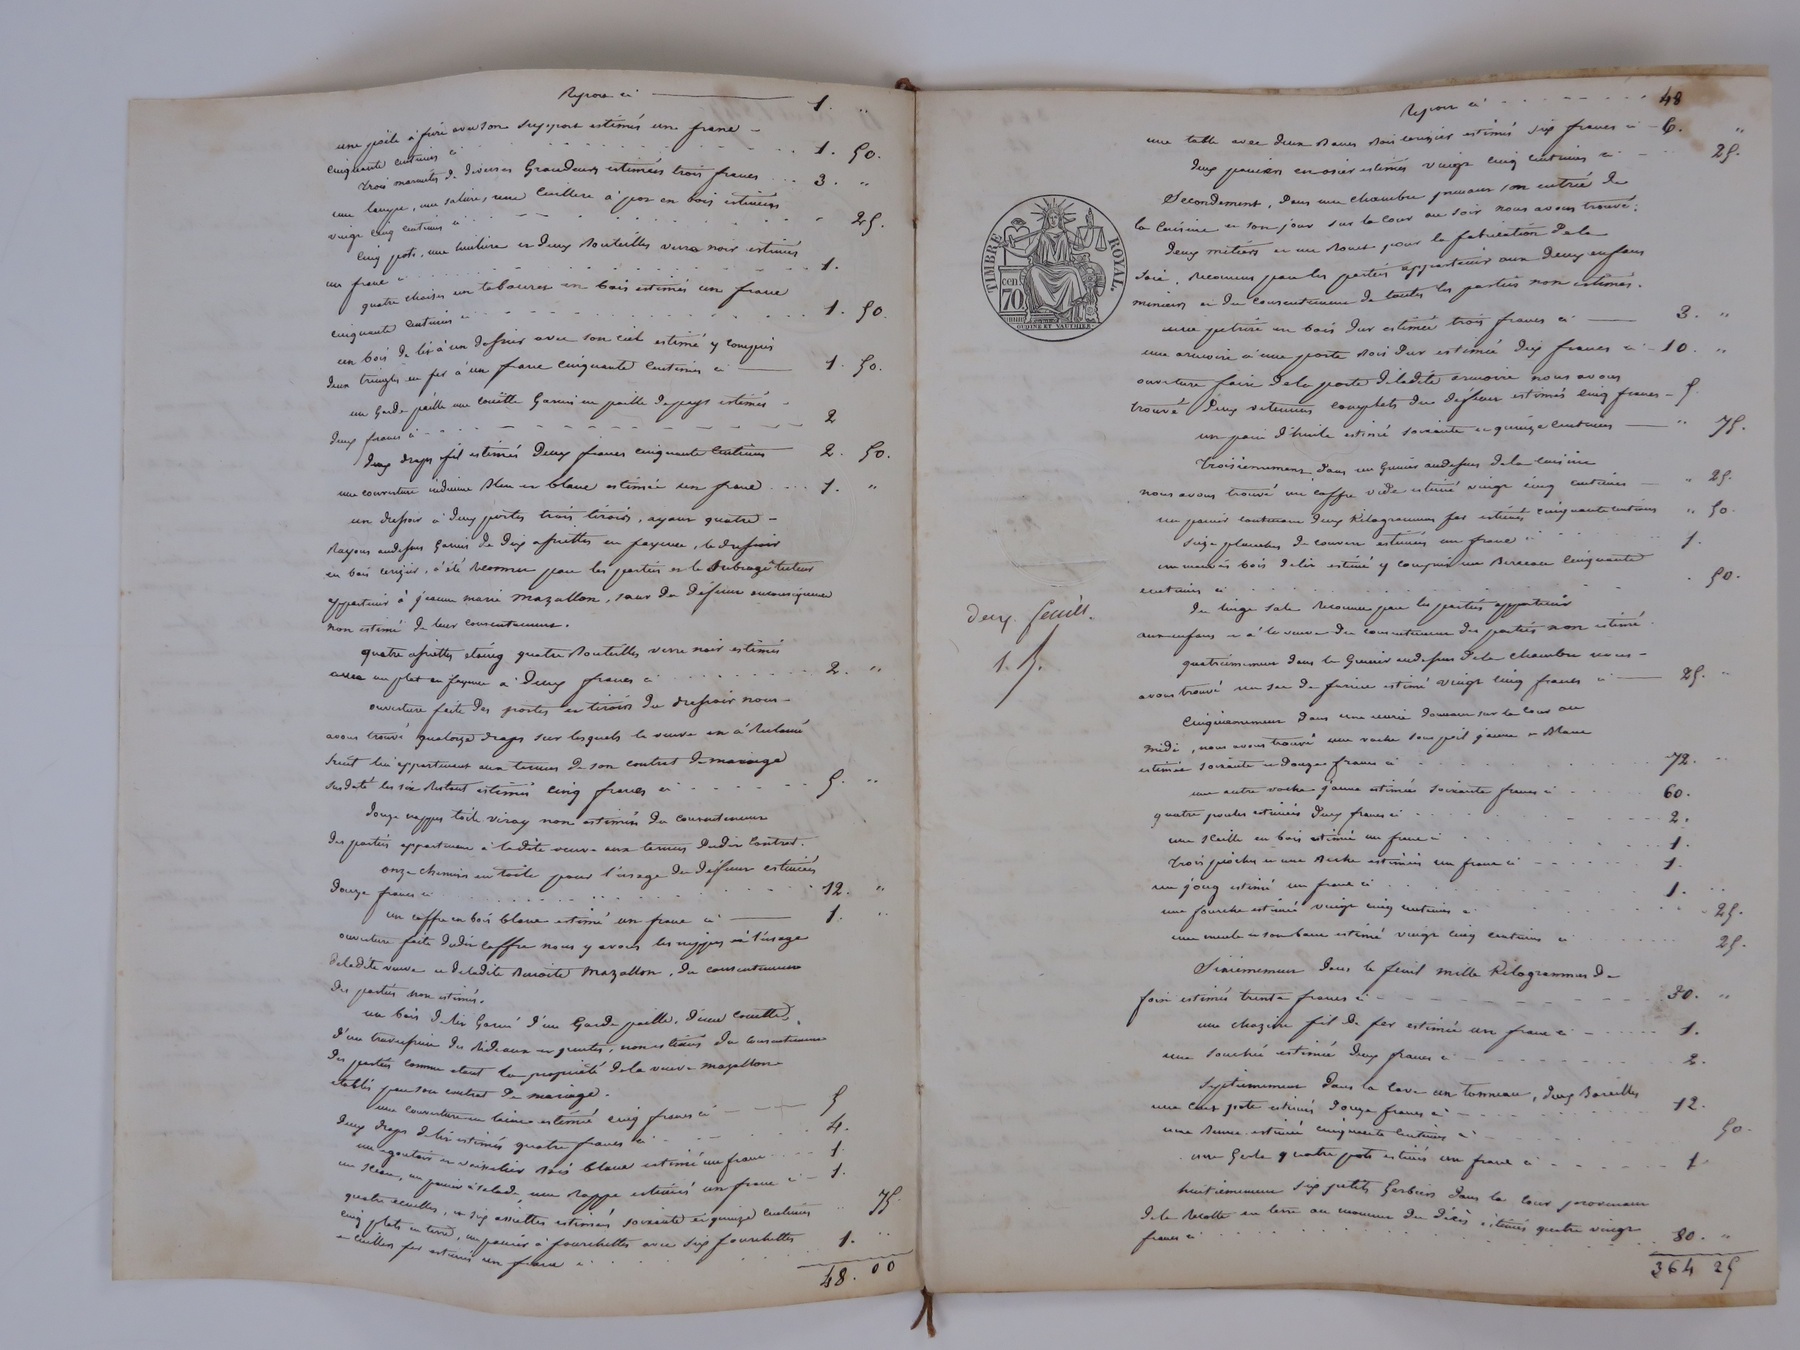 Report ci 1. "
une poële à frire avec son support estimés un franc
cinquante centimes ci 1. 50.
trois marmites de diverses Grandeurs estimées trois francs 3. "
une lampe, une salière, une cuillere à pot en bois estimées
vingt cinq centimes ci " 25.
cinq pots, une huilière et deux Bouteilles verre noir estimés
un franc ci 1.
quatre chaises un tabouret en bois estimés un franc
cinquante centimes ci 1. 50.
un bois de lit à un dossier avec son ciel estimé y compris
deux tringles en fer à un franc cinquante centimes ci 1. 50.
un Garde paille une couëtte Garnie en paille de pays estimés
deux francs ci 2
deux draps fil estimés Deux francs cinquante centimes 2. 50.
une couverture indienne Bleu et blanc estimée un franc 1. "
un dressoir à deux portes trois tiroirs, ayant quatre
Rayons audessus Garnis de dix assiettes en fayence, le dressoir
en bois cerizier, a été reconnu par les parties et le Subrogé tuteur
appartenir à jeanne marie Mazallon, sœur du défunt
non estimé de leur consentement.
quatre assiettes étaing quatre Bouteilles verre noir estimés
avec un plat en fayence à Deux francs ci 2. "
ouverture faite des portes et tiroirs du dressoir nous
avons trouvé quatorze draps sur lesquels la veuve en a réclamé
huit lui appartenant aux termes de son contrat de mariage
susdaté les six Restant estimés cinq francs ci 5. "
douze nappes toile non estimées du consentement
des parties appartenant à ladite veuve aux termes dudit Contrat.
onze chemises en toile pour l'usage du défunt estimées
douze francs ci 12. "
un coffre en bois blanc estimé un franc ci 1. "
ouverture faite dudit coffre nous y avons les nippes à l'usage
de ladite veuve et de ladite Benoite Mazallon, du consentement
des parties non estimés.
un bois de lit Garni d'un Garde paille, d'une couette,
d'un traversin des Rideaux et pentes, non estimés du consentement
des parties comme étant la propriété de la veuve mazallon
établis par son contrat de mariage.
une couverture en laine estimée cinq francs ci 5
deux draps de lit estimés quatre francs ci 4.
un égoutoir en vaisselier bois blanc estimé un franc 1.
un sceau, un panier à salade une Rappe estimés un franc ci 1.
quatre écuelles, et six assiettes estimées soixante et quinze centimes 75.
cinq plats en terre, un panier à fourchettes avec six fourchettes
et cuillers fer estimés un franc ci 1. "
48. 00
Report ci 48
une table avec deux Bancs bois cerizier estimés six francs ci 6. "
deux paniers en osier estimés vingt cinq centimes ci 25.
Secondement, dans une chambre prenant son entrée de
la Cuisine et son jour sur la cour au soir nous avons trouvé:
deux métiers et un Rouet pour la fabrication de la
soie, reconnus par les parties appartenir aux deux enfans
mineurs et du consentement de toutes les parties non estimés.
une petrière en bois dur estimée trois francs ci 3. "
une armoire à une porte bois dur estimée dix francs ci 10. "
ouverture faite de la porte de ladite armoire nous avons
trouvé deux vetements complets du défunt estimés cinq francs 5.
un d'huile estimé soixante et quinze centimes " 75.
troisiemement dans un Grenier audessus de la cuisine
nous avons trouvé un coffre vide estimé vingt cinq centimes " 25.
un panier contenant deux Kilogrammes fer estimés cinquante centimes " 50.
seize planches de estimées un franc ci 1.
un mauvais bois de lit estimé y compris un Berceau cinquante
centimes ci 50.
du linge sale Reconnu par les parties appartenir
aux enfans et à la veuve du consentement des parties non estimé.
quatriemement dans le Grenier audessus de la chambre nous
avons trouvé un sac de farine estimé vingt cinq francs ci 25. "
Cinquiemement dans une écurie donnant sur la cour au
midi, nous avons trouvé une vache sous poil jaune et Blanc
estimée soixante et douze francs ci 72. "
une autre vache jaune estimée soixante francs ci 60.
quatre poules estimées deux francs ci 2.
une seille en bois estimée un franc ci 1.
trois pioches et une Beche estimées un franc ci 1.
un joug estimé un franc ci 1. "
une fourche estimée vingt cinq centimes ci 25.
une meule et son banc estimé vingt cinq centimes ci 25.
Sixiemement dans le fenil mille Kilogrammes de
foin estimés trente francs ci 30. "
une fil de fer estimée un franc ci 1.
une estimée deux francs ci 2.
Septiemement dans la cave un tonneau, deux Barailles
une estimés douze francs ci 12.
une Benne estimée cinquante centimes ci 50.
une Gerle quatre pots estimés un franc ci 1
huitiemement six petits Gerbiers dans la cour provenant
de la Récolte en terre au moment du décès estimés quatre vingt
francs ci 80. "
364 25
TIMBRE ROYAL.
CCD.
70
OUDINÉ ET VAUTHIER
Deux. feuill.